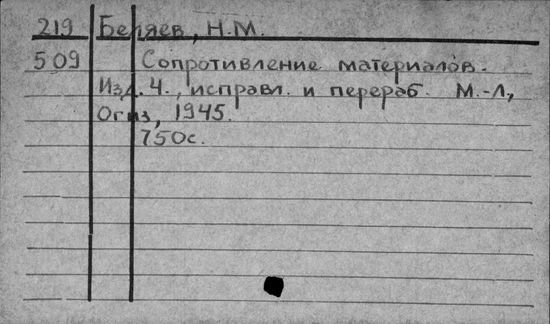 219 Беляев, Н.М.
509 Сопротивление материалов.
Изд. 4., исправл. и перераб. М.-Л.,
Огиз, 1945.
750с.